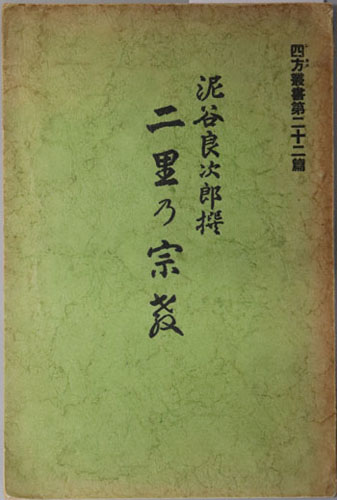 四方叢書第二十二篇
泥谷良次郎撰
二里乃宗教